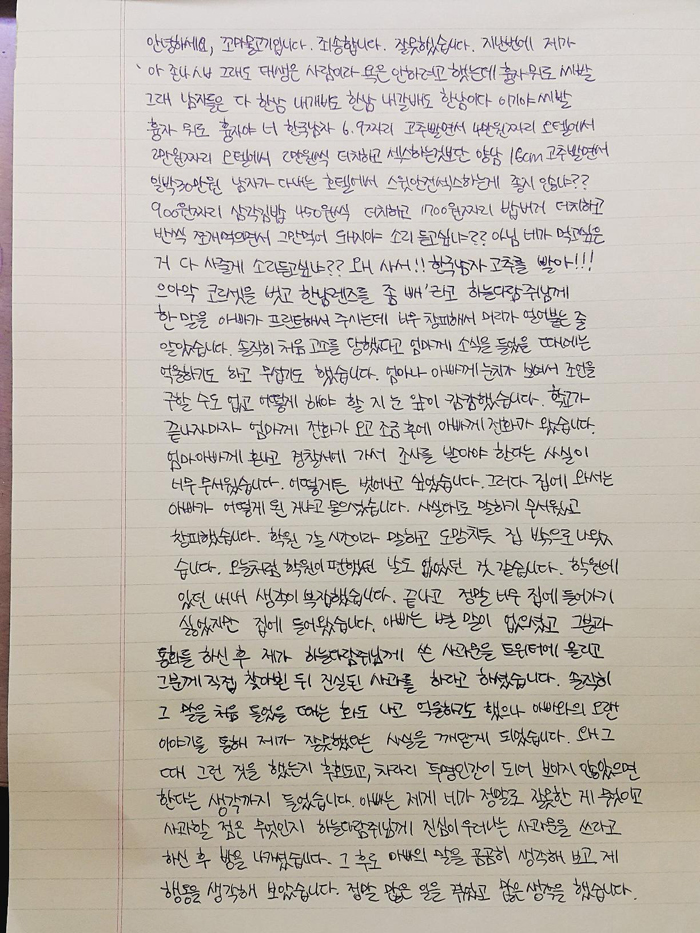 안녕하세요, 꼬마물고기입니다. 죄송합니다. 잘못했습니다. 지난번에 제가
'아 존나 시발 그래도 대생은 사람이라 욕은 안하려고 했는데 흉자 뭐로 씨발
그래 남자들은 다 한남 내개비도 한남 내갈배도 한남이다 이기야 씨발
흉자 뭐로 흉자야 너 한국남자 6.9짜리 고추빨면서 4만원짜리 모텔에서
2만원짜리 모텔에서 2만원씩 더치하고 섹스하는것보단 양남 18cm 고추빨면서
일박30만원 남자가 다내는 호텔에서 스윗안전섹스하는게 좋지 않냐??
900원짜리 삼각김밥 450원씩 더치하고 1700원짜리 밥버거 더치하고
반씩 쪼개먹으면서 그만먹어 돼지야 소리 듣고싶냐?? 아님 네가 먹고싶은
거 다 사줄게 소리듣고싶냐?? 왜 사서!! 한국남자 고추를 빨아!!!
으아악 코르셋을 벗고 한남렌즈를 좀 빼'라고 하늘다람쥐님께
한 말을 아빠가 프린트해서 주시는데 너무 창피해서 머리가 얼어붙는 줄
알았습니다. 솔직히 처음 고소를 당했다고 엄마께 소식을 들었을 때에는
억울하기도 하고 무섭기도 했습니다. 엄마나 아빠께 눈치가 보여서 조언을
구할 수도 없고 어떻게 해야 할 지 눈 앞이 캄캄했습니다. 학교가
끝나자마자 엄마께 전화가 오고 조금 후에 아빠께 전화가 왔습니다.
엄마아빠께 혼나고 경찰서에 가서 조사를 받아야 한다는 사실이
너무 무서웠습니다. 어떻게든 벗어나고 싶었습니다. 그러다 집에 와서는
아빠가 어떻게 된 거냐고 물으셨습니다. 사실대로 말하기 무서웠고
창피했습니다. 학원 갈 시간이라 말하고 도망치듯 집 밖으로 나왔
습니다. 오늘처럼 학원이 편했던 날도 없었던 것 같습니다. 학원에
있던 내내 생각이 복잡했습니다. 끝나고 정말 너무 집에 들어가기
싫었지만 집에 들어왔습니다. 아빠는 별 말이 없으셨고 그분과
통화를 하신 후 제가 하늘다람쥐님께 쓴 사과문을 트위터에 올리고
그분께 직접 찾아뵌 뒤 진실된 사과를 하라고 하셨습니다. 솔직히
그 말을 처음 들었을 때는 화도 나고 억울하기도 했으나 아빠와의 오랜
이야기를 통해 제가 잘못했다는 사실을 깨닫게 되었습니다. 왜 그
때 그런 것을 했는지 후회되고, 차라리 투명인간이 되어 보이지 않았으면
한다는 생각까지 들었습니다. 아빠는 제게 네가 정말로 잘못한 게 무엇이고
사과할 점은 무엇인지 하늘다람쥐님께 진심이 우러나는 사과문을 쓰라고
하신 후 방을 나가셨습니다. 그 후로 아빠의 말을 곰곰히 생각해 보고 제
행동을 생각해 보았습니다. 정말 많은 일을 겪었고 많은 생각을 했습니다.